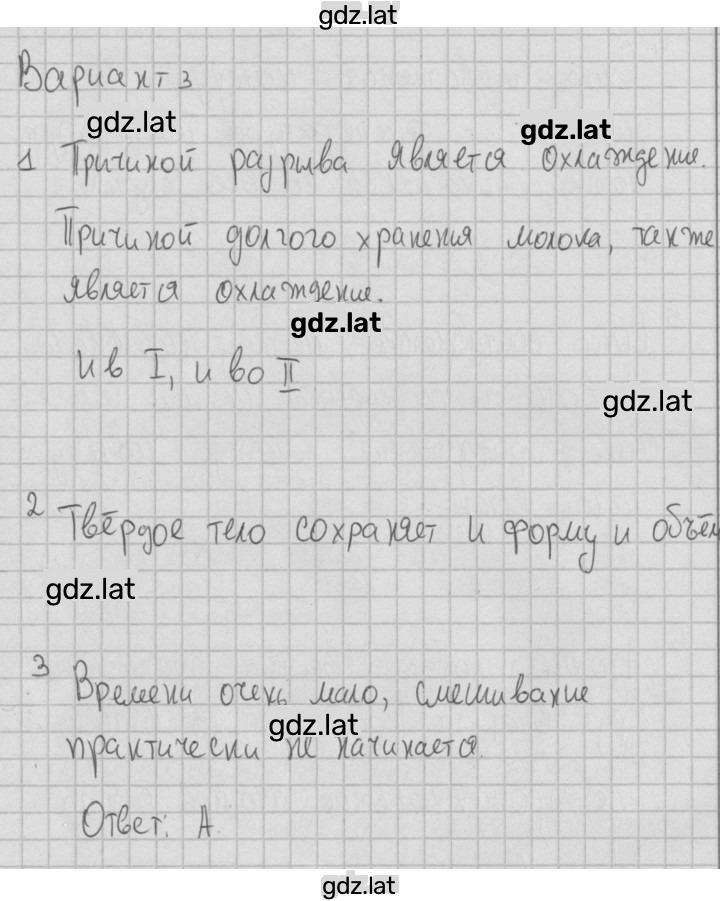 gdz.lat
Вариант 3
gdz.lat
gdz.lat
1 Причиной разрыва является охлаждение.
Причиной долгого хранения молока, также
является охлаждение.
gdz.lat
И в I, и во II
gdz.lat
2 Твёрдое тело сохраняет и форму и объём
gdz.lat
3 Времени очень мало, смешивание
gdz.lat
практически не начинается.
Ответ: А
gdz.lat